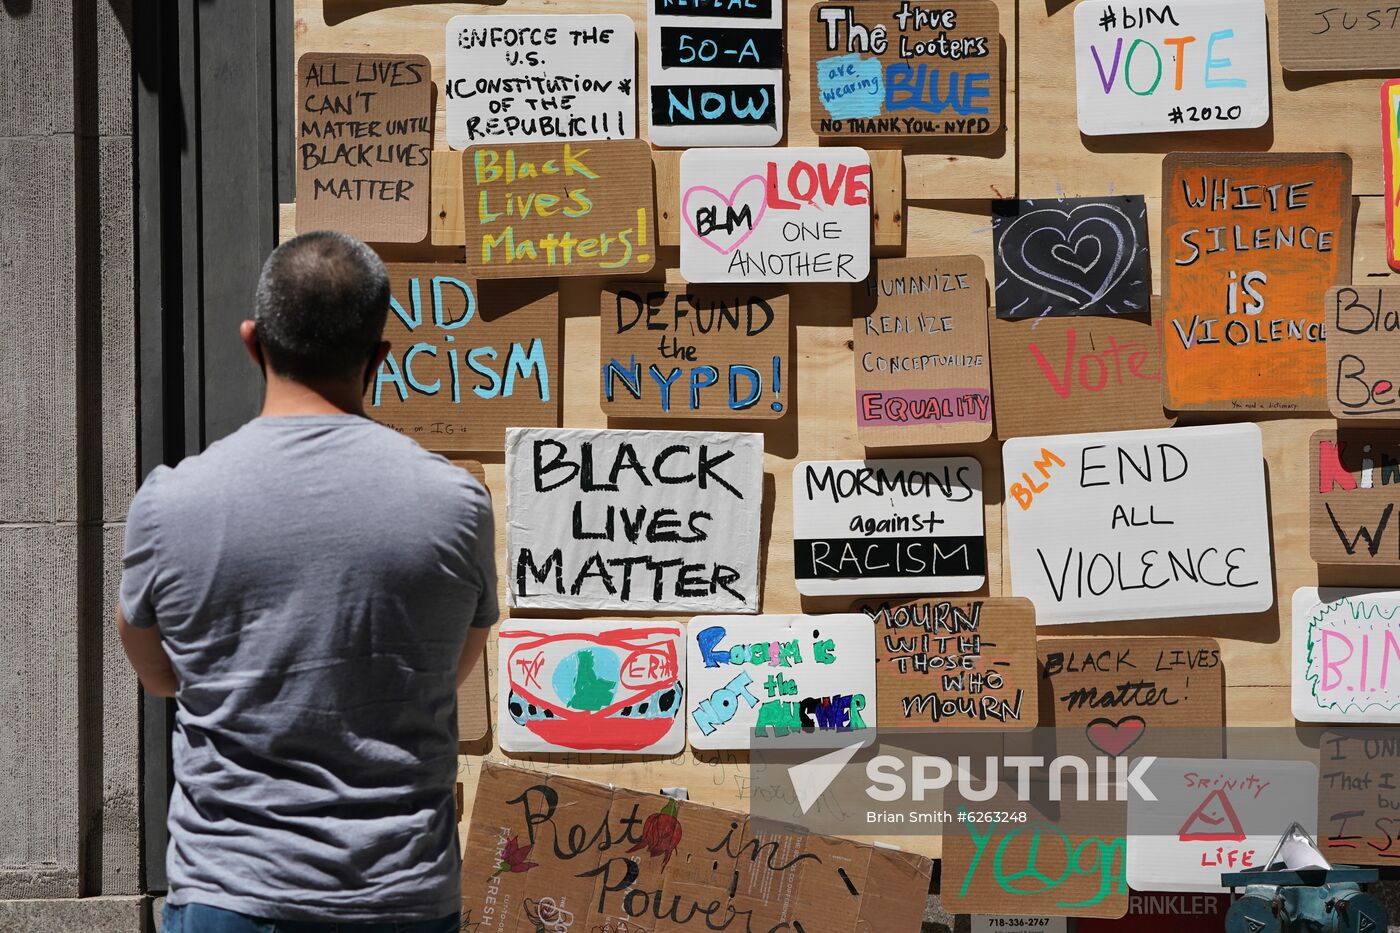 ALL LIVES
CAN'T
MATTER UNTIL
BLACK LIVES
MATTER
ENFORCE THE
U.S.
CONSTITUTION *
OF THE
REPUBLIC!!!
REPEAL
50-A
NOW
The true
Looters
are
wearing
BLUE
NO THANK YOU - NYPD
#blM
VOTE
#2020
JUST
Black
Lives
Matters!
BLM
LOVE
ONE
ANOTHER
WHITE
SILENCE
iS
VIOLENCE
You need a dictionary
ND
ACiSM
on IG is
DEFUND
the
NYPD!
HUMANIZE
REALIZE
CONCEPTUALIZE
EQUALITY
Vote
Bla
Be
BLACK
LIVES
MATTER
MORMONS
against
RACISM
BLM
END
ALL
VIOLENCE
Kin
Wi
Racism is
NOT
the
ANSWER
MOURN
WITH
THOSE
WHO
MOURN
BLACK LIVES
matter!
B.I.
I UN
That I
bu
I S
SRiNiTY
LiFE
Rest in
Power
FARM FRESH
718-336-2767
RINKLER
SPUTNIK
Brian Smith #6263248